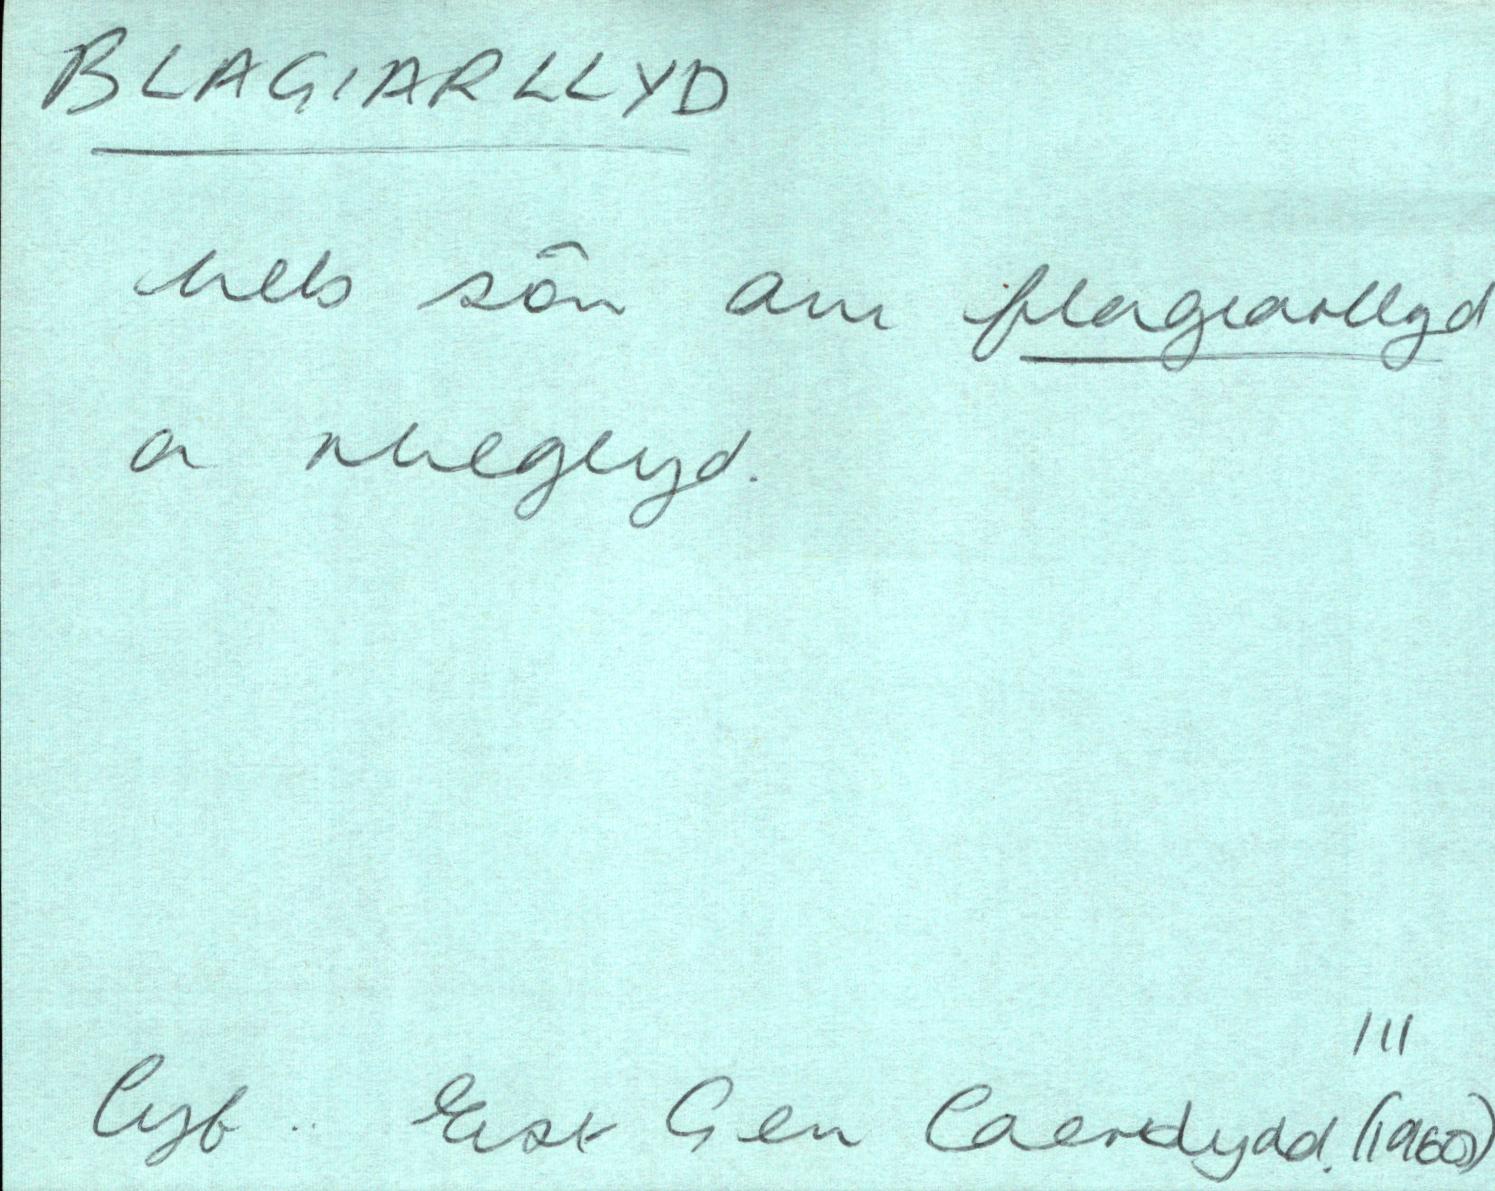 BLAGIARLLYD
heb sôn am flagiarllyd
a rheglyd.
111
Cyf.. Eist Gen Caerdydd. (1960)